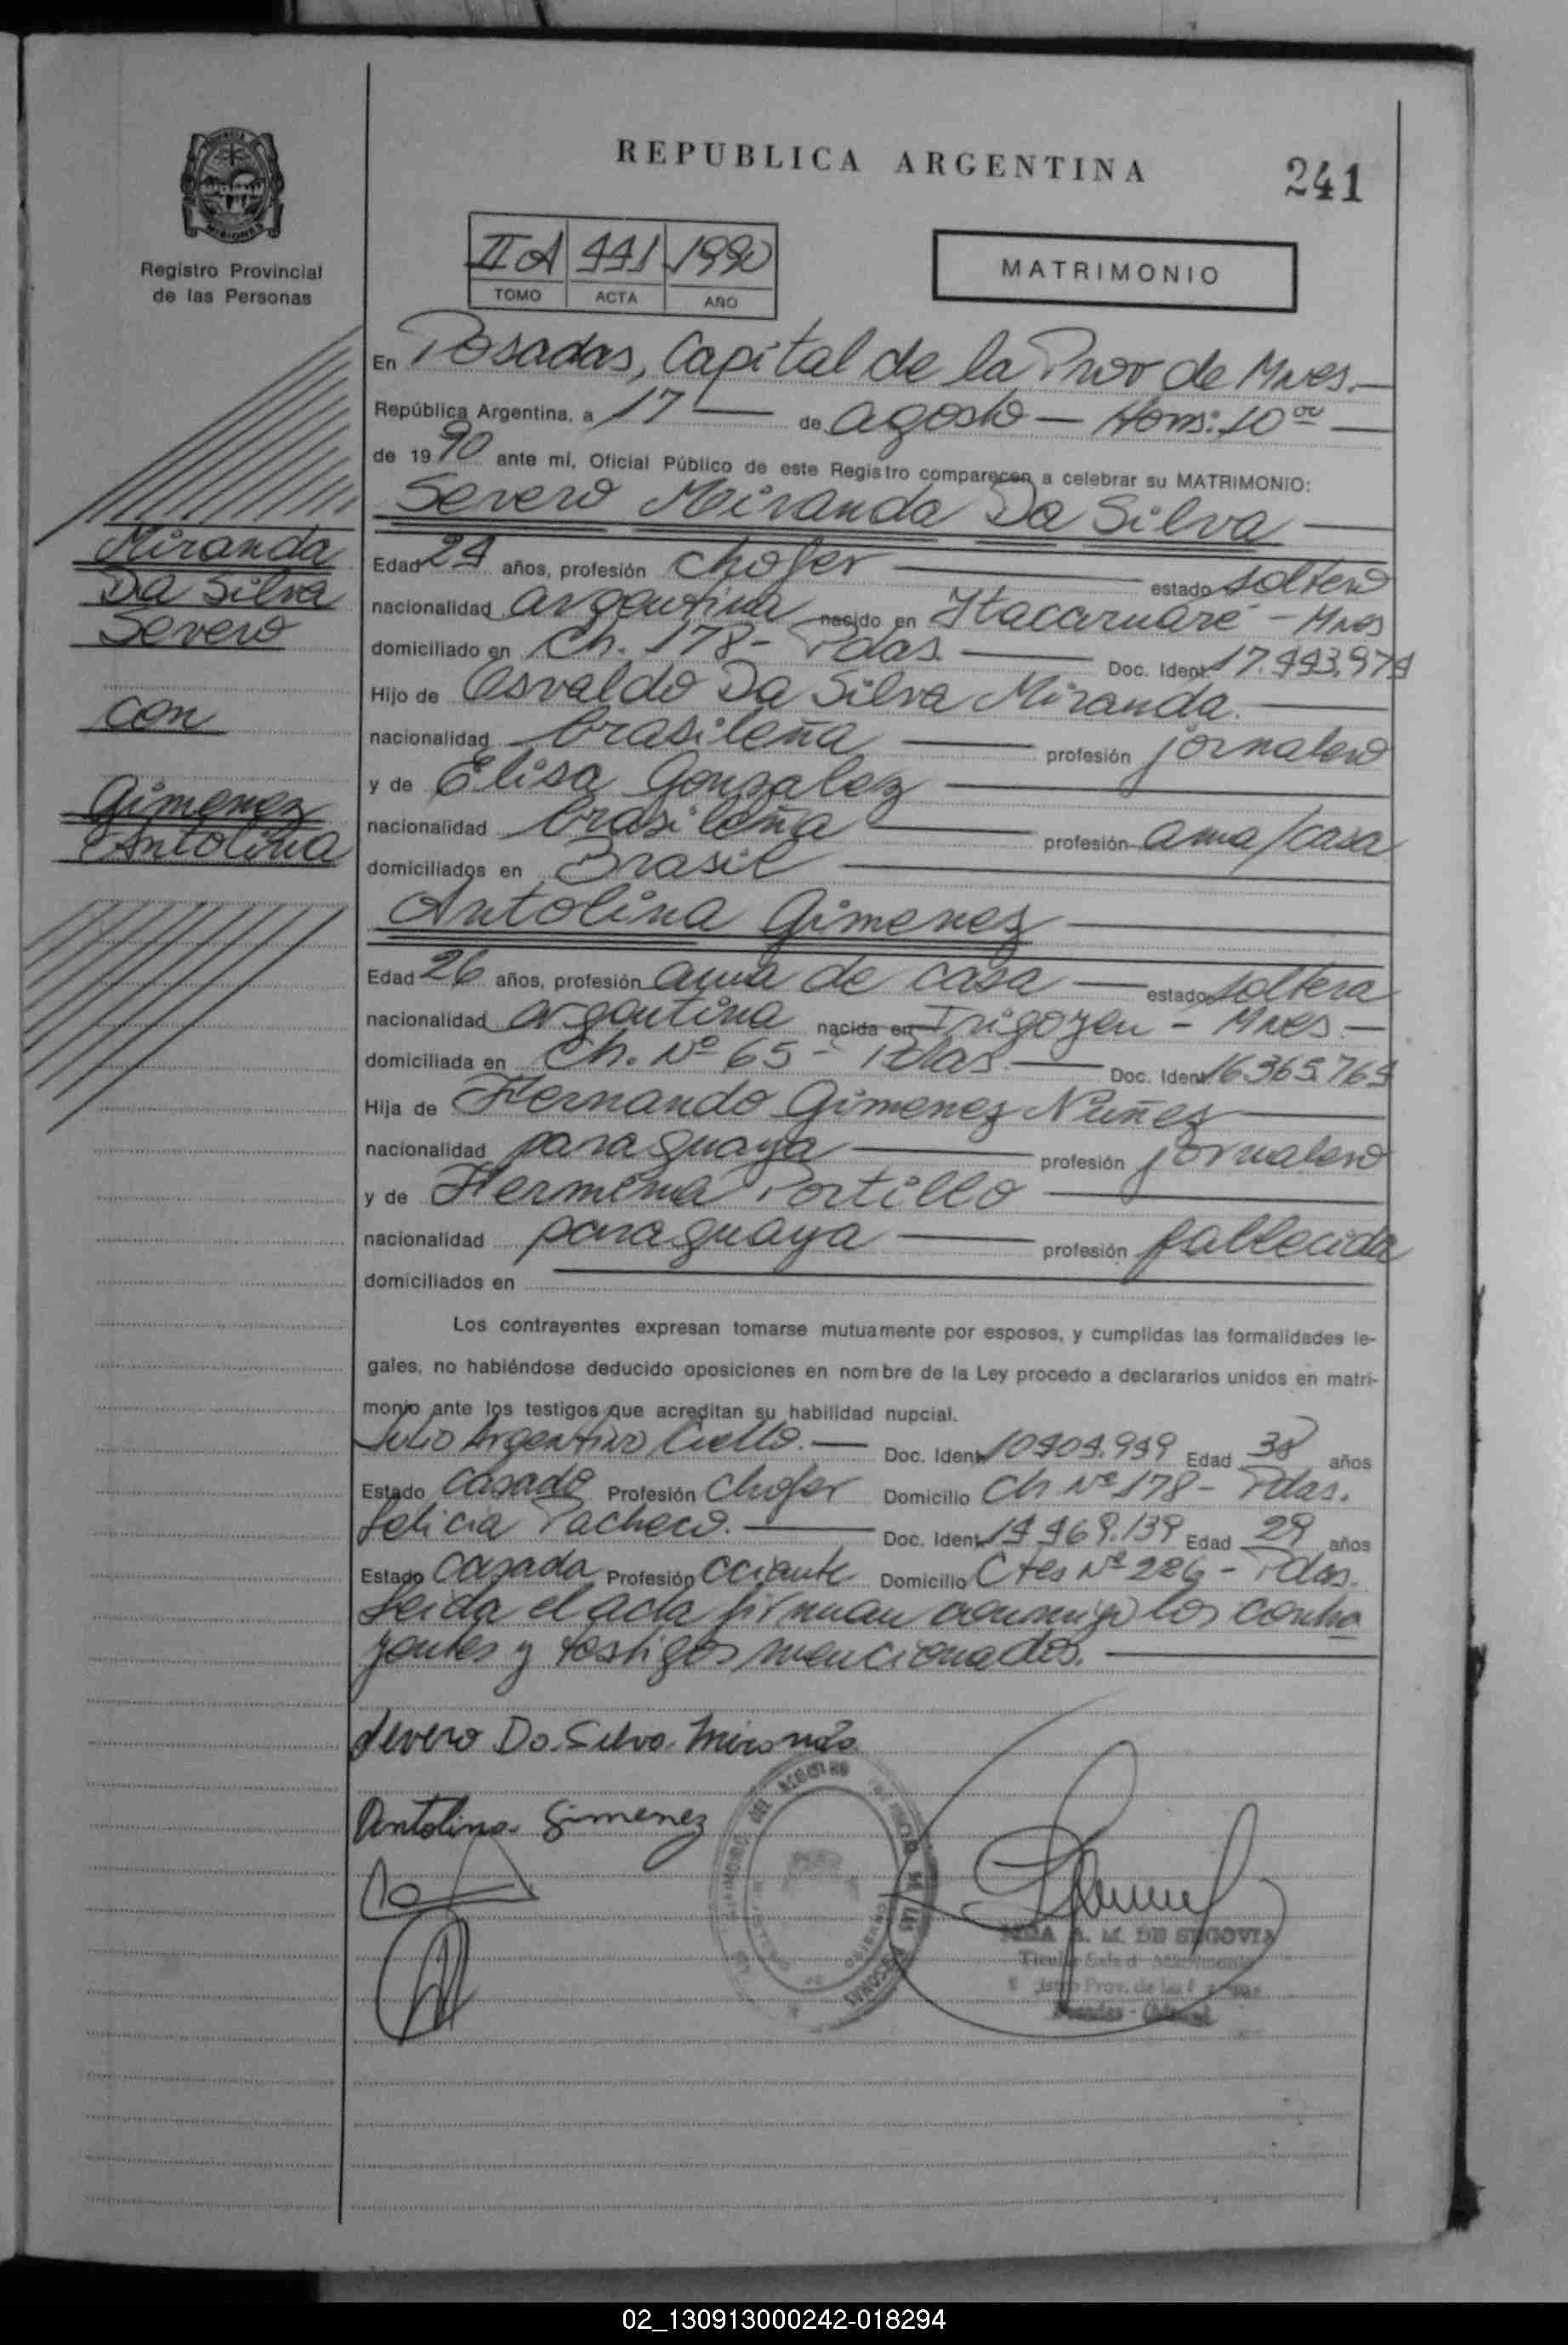 REPUBLICA ARGENTINA
241
Registro Provincial
de las Personas
II A 441 1990
TOMO ACTA AÑO
MATRIMONIO
En Posadas, Capital de la Prov de Mnes.
República Argentina, a 17 de agosto - Hora: 10 00
de 1990 ante mí, Oficial Público de este Registro comparecen a celebrar su MATRIMONIO:
Severo Miranda Da Silva
Miranda
Da Silva
Severo
con
Gimenez
Antolina
Edad 24 años, profesión chofer estado soltero
nacionalidad argentina nacido en Itacaruaré - Mnes
domiciliado en Ch. 178 - Pdas. Doc. Ident. 17.443.974
Hijo de Osvaldo Da Silva Miranda.
nacionalidad brasileña profesión jornalero
y de Elisa Gonzalez
nacionalidad brasileña profesión ama/casa
domiciliados en Brasil
Antolina Gimenez
Edad 26 años, profesión ama de casa estado soltera
nacionalidad argentina nacida en Irigoyen - Mnes
domiciliada en Ch. Nº 65 - Pdas Doc. Ident. 16365.764
Hija de Hernando Gimenez Nuñez
nacionalidad paraguaya profesión jornalero
y de Herminia Portillo
nacionalidad paraguaya profesión fallecida
domiciliados en
Los contrayentes expresan tomarse mutuamente por esposos, y cumplidas las formalidades le-
gales, no habiéndose deducido oposiciones en nombre de la Ley procedo a declararlos unidos en matri-
monio ante los testigos que acreditan su habilidad nupcial.
Julio Argentino Doc. Ident. 10404.949 Edad 38 años
Estado casado Profesión chofer Domicilio Ch Nº 178 - Pdas.
Felicia Pacheco. Doc. Ident. 14469.139 Edad 29 años
Estado casada Profesión cciante Domicilio Ctes Nº 226 - Pdas.
Leida el acta firman conmigo los contra
yentes y testigos mencionados.
Severo Da Silva Miranda
Antolina Gimenez
A. M. DE SEGOVIA
02_130913000242-018294